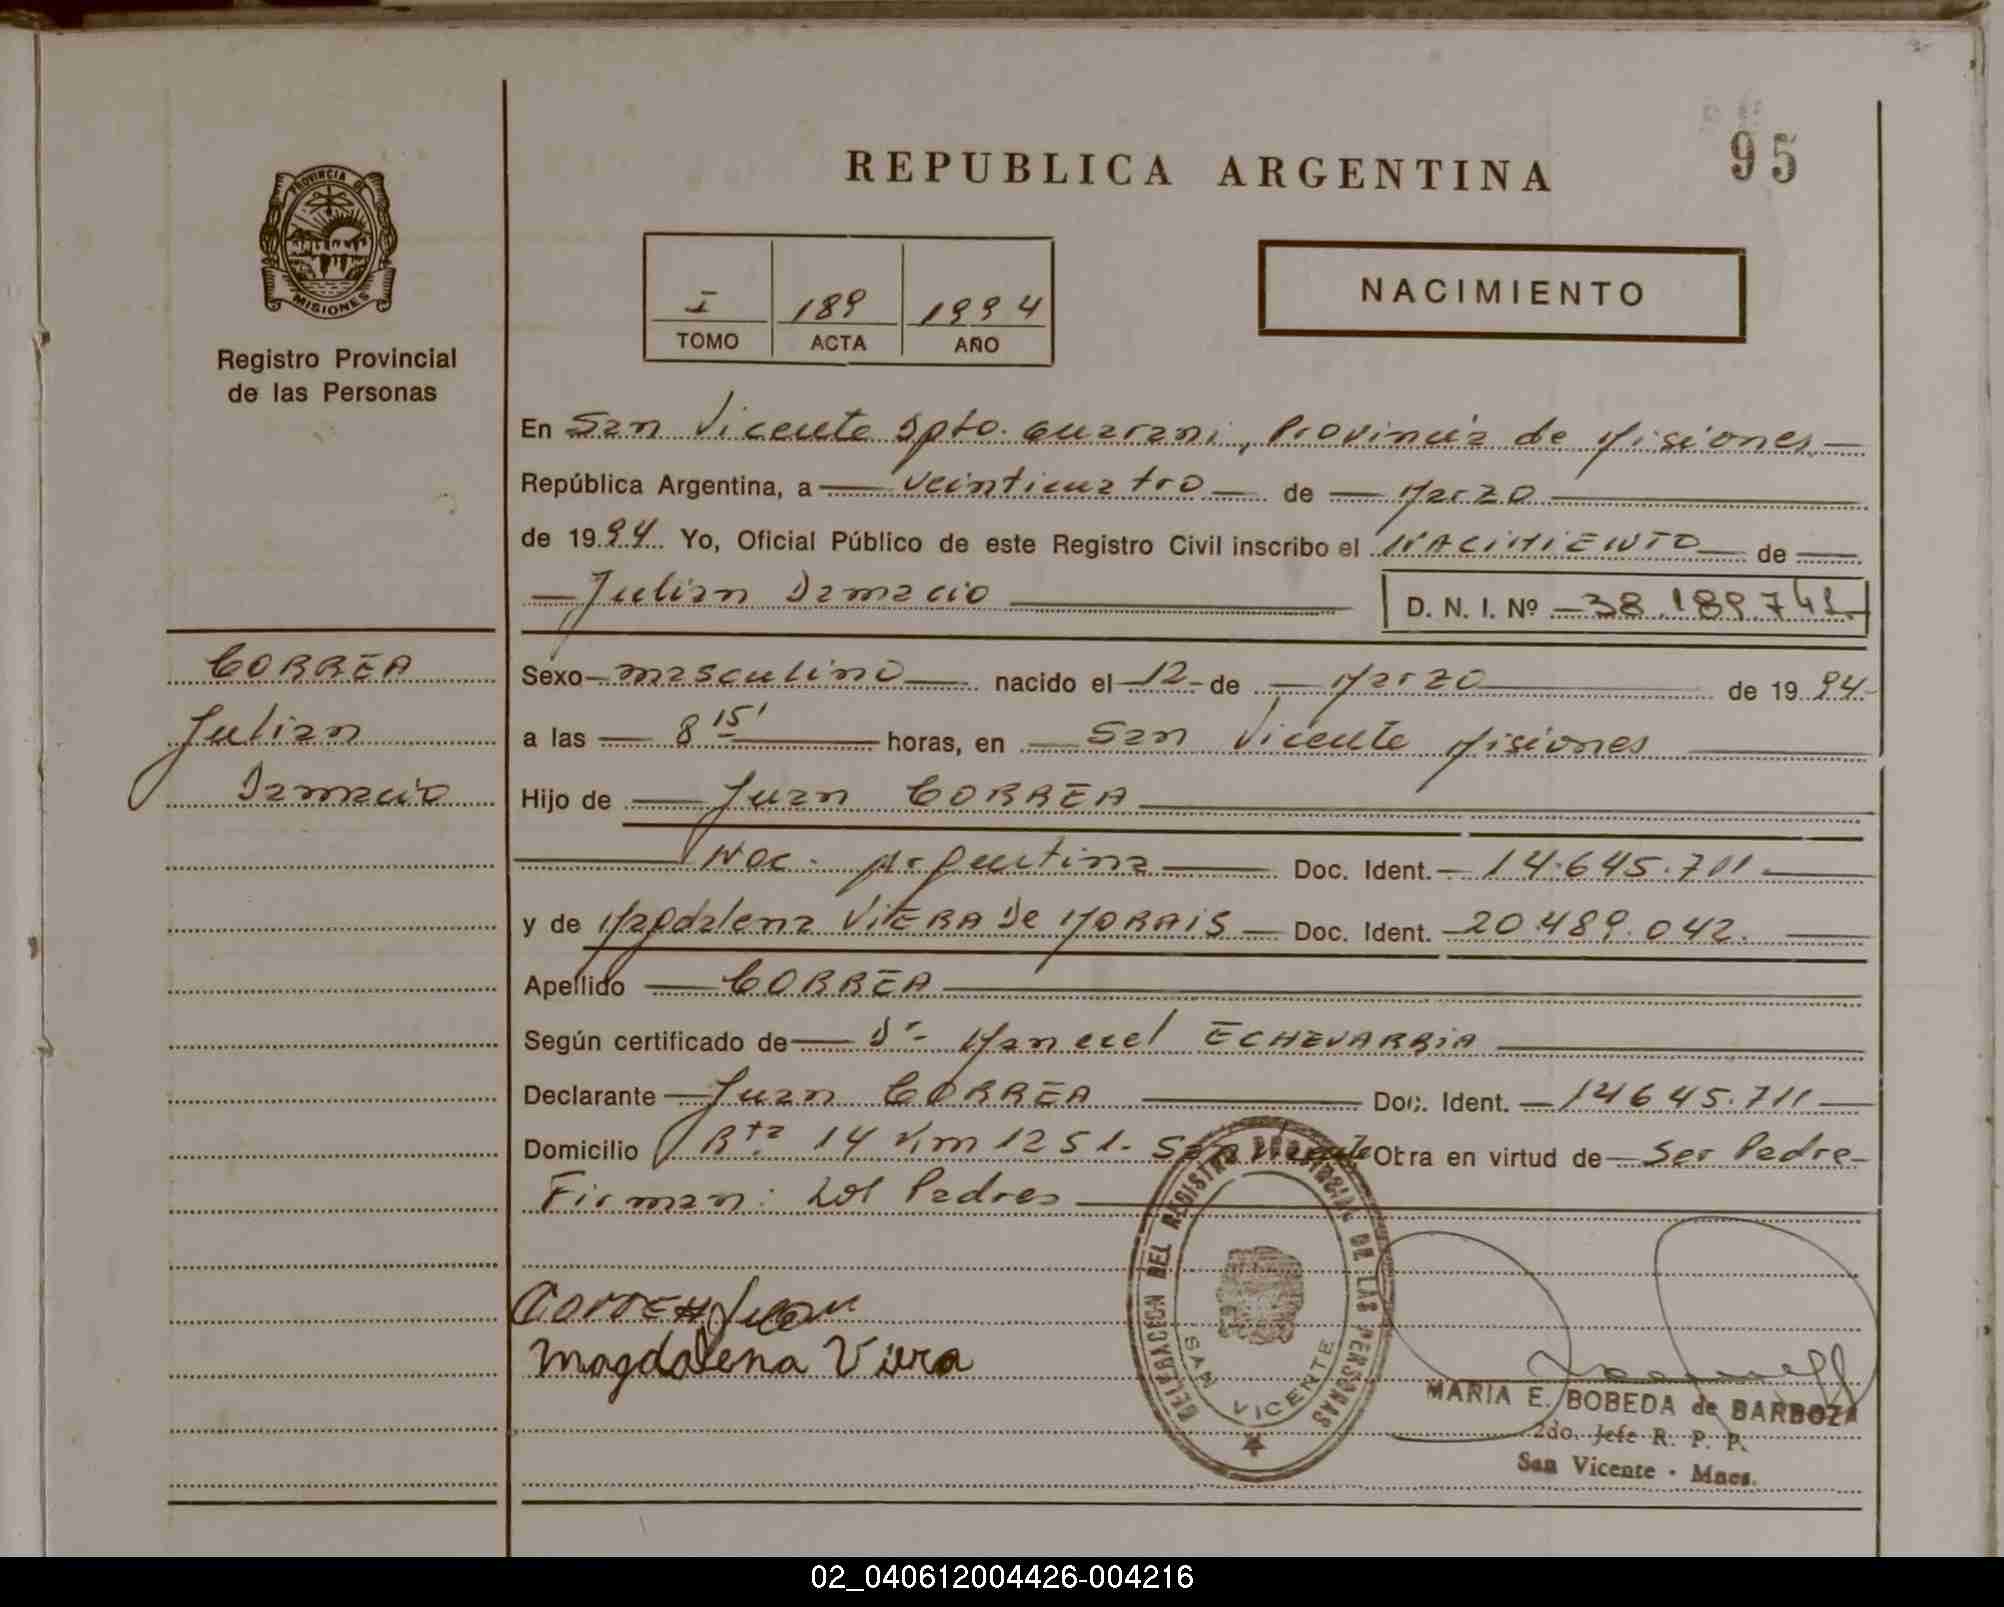 95
REPUBLICA ARGENTINA
PROVINCIA DE
MISIONES
Registro Provincial
de las Personas
I 189 1994
TOMO ACTA AÑO
NACIMIENTO
En San Vicente Dpto. Guarani, Provincia de Misiones.
República Argentina, a veinticuatro de Marzo
de 1994. Yo, Oficial Público de este Registro Civil inscribo el NACIMIENTO de
Julian Damacio D. N. I. Nº 38.189.741
CORREA
Julian
Damacio
Sexo masculino nacido el 12 de Marzo de 1994
a las 8 15' horas, en San Vicente Misiones
Hijo de Juan CORREA
Nac. Argentina Doc. Ident. 14.645.711
y de Magdalena ViERA De MORAiS Doc. Ident. 20.489.042.
Apellido CORREA
Según certificado de Dr. Manuel ECHEVARRiA
Declarante Juan CORREA Doc. Ident. 14645.711
Domicilio Rta 14 Km 1251. San Vicente Obra en virtud de Ser Padre
Firman: Los Padres
Correa Juan
Magdalena Viera
DELEGACION DEL REGISTRO PROVINCIAL DE LAS PERSONAS
SAN VICENTE
MARIA E. BOBEDA de BARBOZA
2do. Jefe R. P. P.
San Vicente - Mnes.
02_040612004426-004216